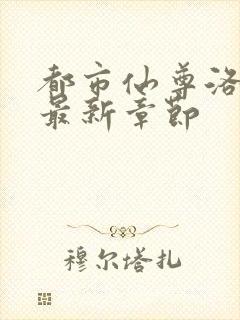 都市仙尊洛
最新章节
穆尔塔扎